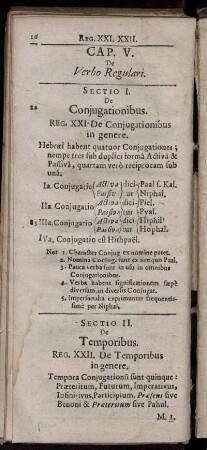 16 REG. XXI. XXII.
CAP. V.
De
Verbo Regulari.
SECTIO I.
De
Conjugationibus.
REG. XXI. De Conjugationibus
in genere.
Hebræi habent quatuor Conjugationes;
nempe tres sub duplici formâ Activâ &
Passivâ, quartam verò reciprocam sub
unâ.
Ia. Conjugatio Activa dici- Paal s. Kal.
Passiva tur Niphal.
IIa. Conjugatio Activa dici- Piel.
Passiva tur Pyal.
IIIa. Conjugatio Activa dici- Hiphil
Passiva tur Hophal.
IVa. Conjugatio est Hithpaël.
Not 1. Character Conjug. ex nomine patet.
2. Nomina Conjug. sunt ex antiquo Paal.
3. Pauca verba sunt in usu in omnibus
Conjugationibus.
4. Verba habens significationem sæpè
diversam, in diversis Conjugat.
5. Impersonalia exprimuntur frequentis-
simè per Niphal.
SECTIO II.
De
Temporibus.
REG. XXII. De Temporibus
in genere.
Tempora Conjugationis sunt quinque:
Præteritum, Futurum, Imperativus,
Infinitivus, Participium. Præsens sive
Benoni & Præteritum sive Pahul.
M. 1.